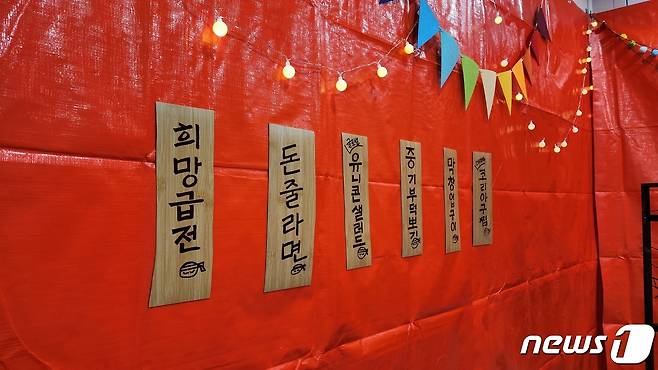 희망급전
돈줄라면
유니콘샐러드
중기부덕뽀김
막창업구이
코리아구찜
news1